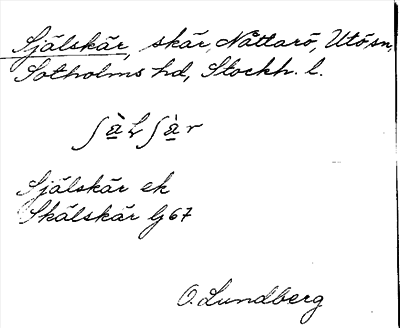 Själskär, skär, Nåttarö, Utö sn,
Sotholms hd, Stockh. l.
ʃàlʃàr
Själskär ek
Skälskär Gj 67
O. Lundberg